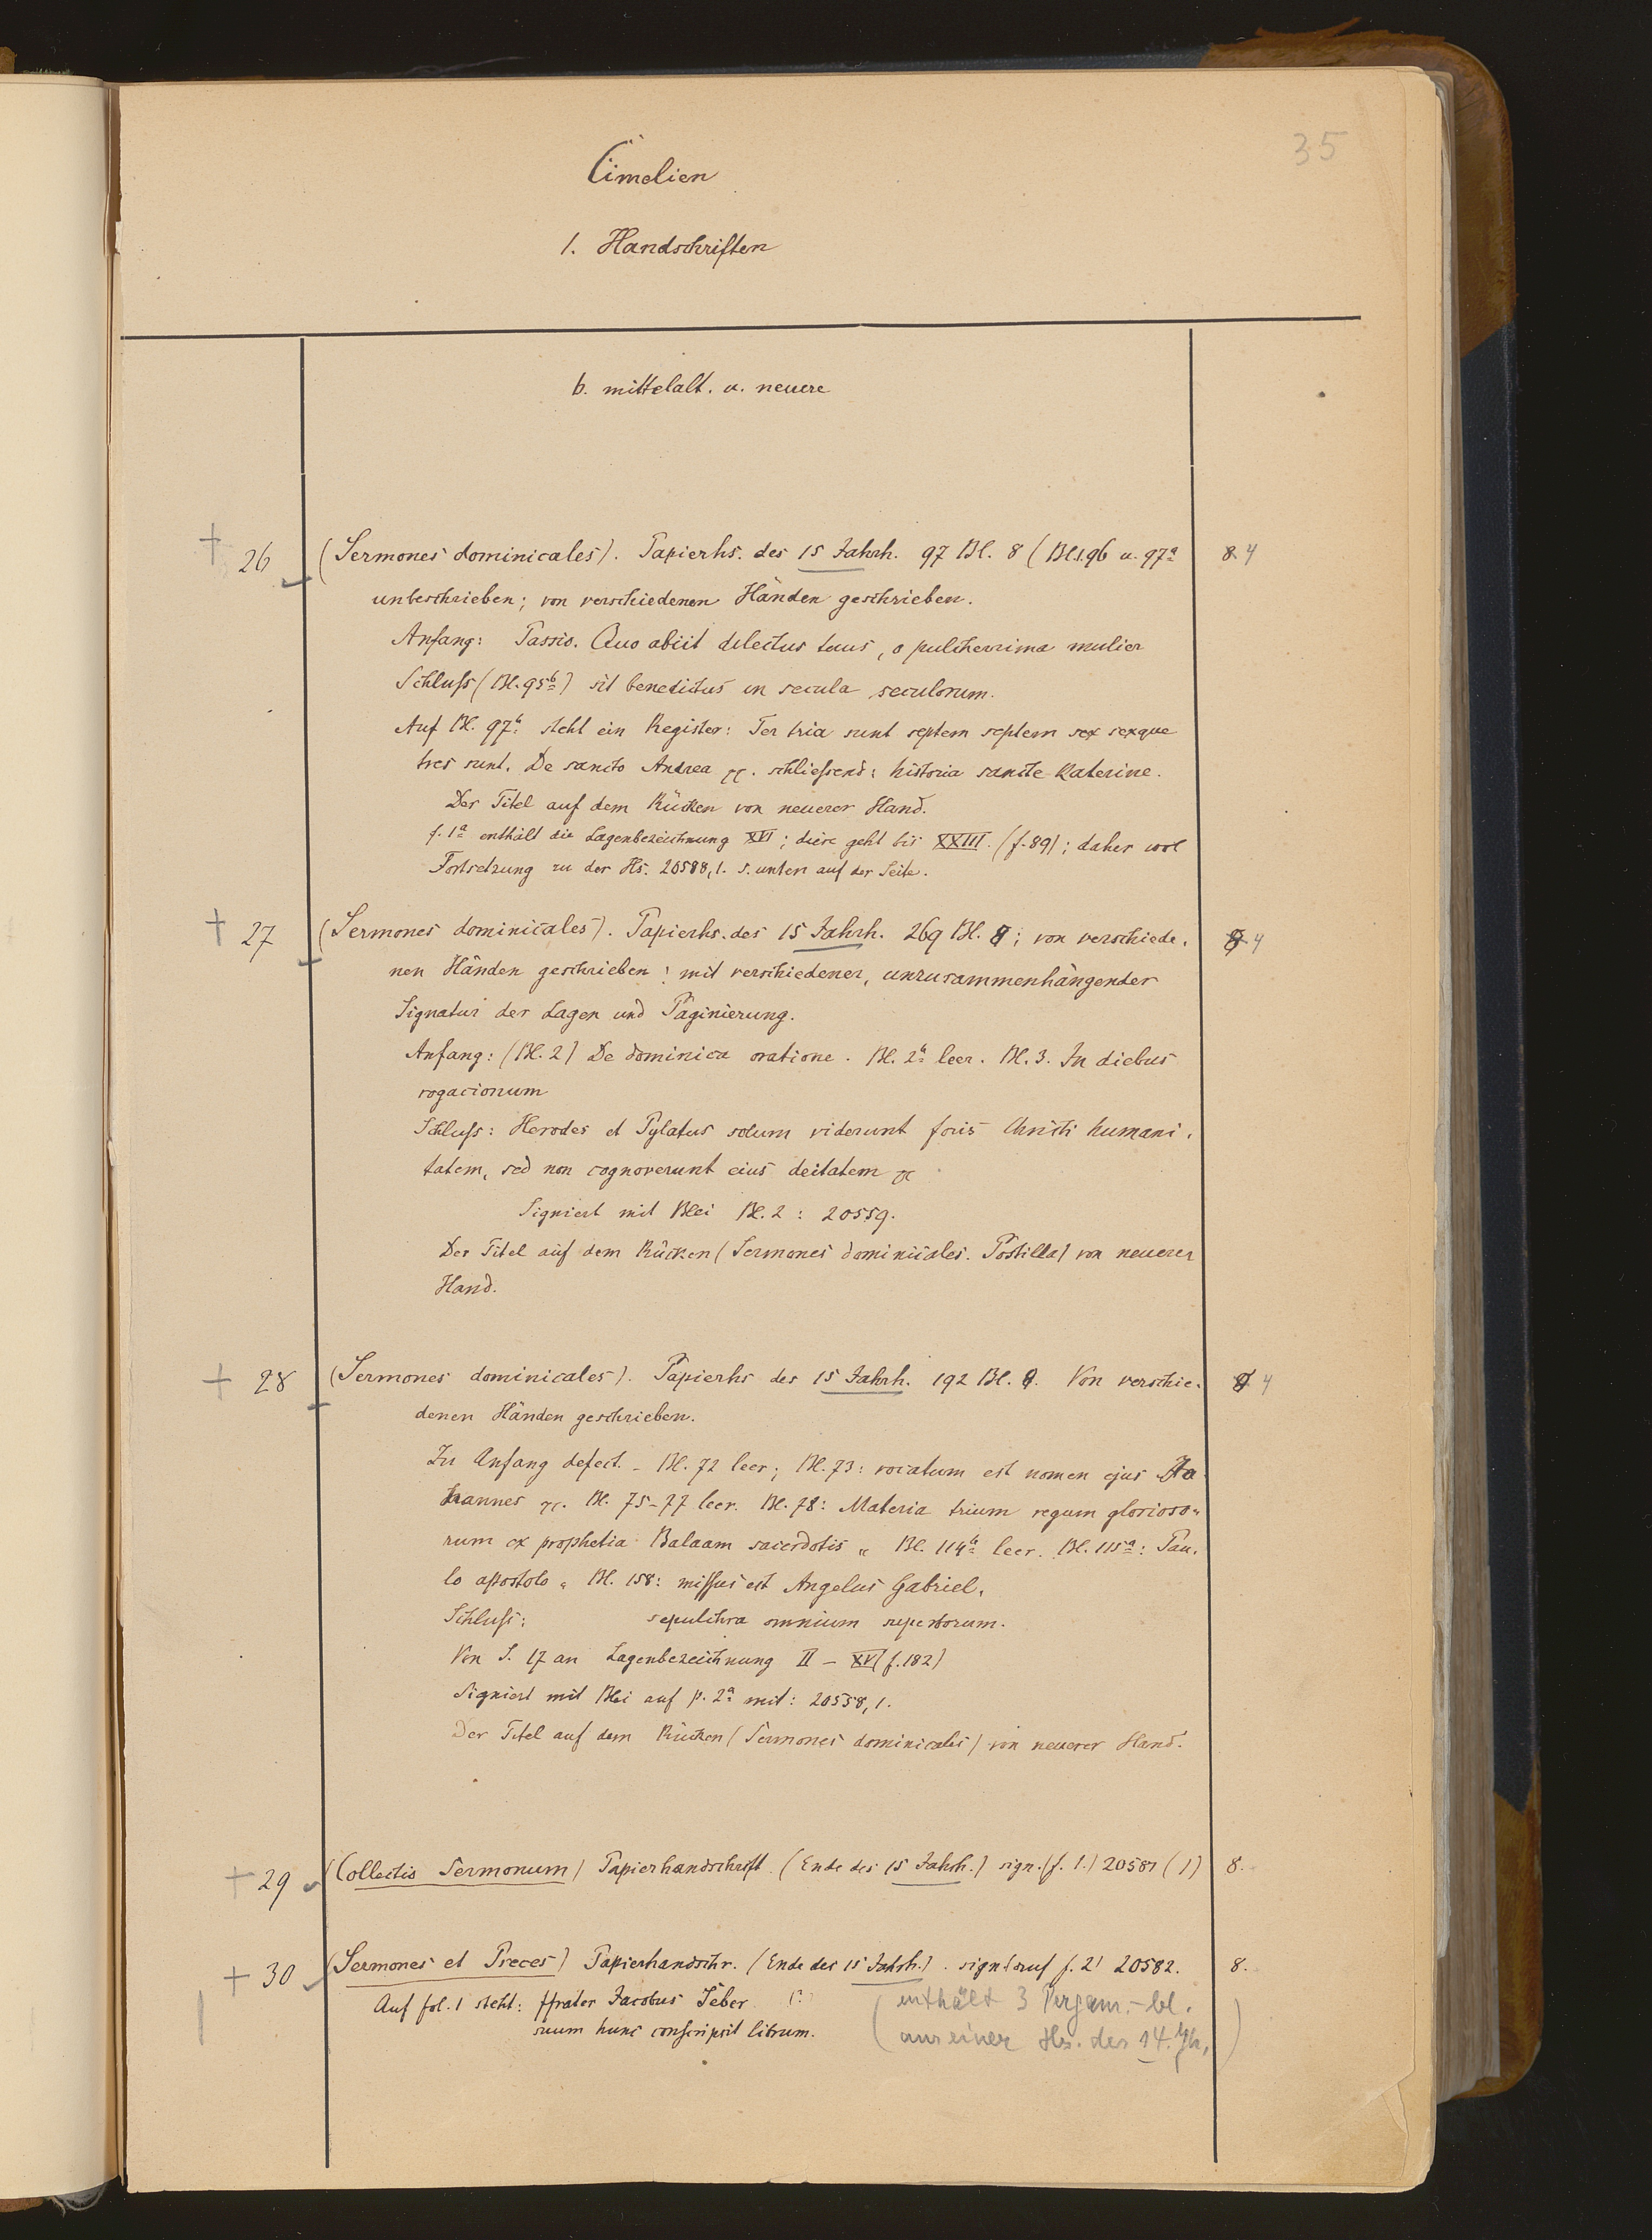 35
Cimelien
1. Handschriften
b. mittelalt. u. neuere
† 26 (Sermones dominicales). Papierhs. des 15 Jahrh. 97 Bl. 8 (Bl. 96 u. 97a 8. 4
unbeschrieben; von verschiedenen Händen geschrieben.
Anfang: Passio. Quo abiit dilectus tuus, o pulcherrima mulier
Schluß (Bl. 95b) sit benedictus in secula seculorum.
Auf Bl. 97b steht ein Register: Ter tria sunt septem septem sex sexque
tres sunt. De sancto Andrea etc. schließend: historia sancte Katerine.
Der Titel auf dem Rücken von neuerer Hand.
f. 1a enthält die Lagenbezeichnung XVI; diese geht bis XXIII. (f. 89); daher wol
Fortsetzung zu der Hs. 20588,1. s. unten auf der Seite.
† 27 (Sermones dominicales). Papierhs. des 15 Jahrh. 269 Bl. 8; von verschiede- 8 4
nen Händen geschrieben: mit verschiedener, unzusammenhängender
Signatur der Lagen und Paginierung.
Anfang: (Bl. 2) De dominica oratione. Bl. 2b leer. Bl. 3. In diebus
rogacionum
Schluss: Herodes et Pylatus solum viderunt foris Christi humani-
tatem, sed non cognoverunt eius deitatem etc
Signiert mit Blei Bl. 2: 20559.
Der Titel auf dem Rücken (Sermones dominicales. Postilla) von neuerer
Hand.
† 28 (Sermones dominicales). Papierhs des 15 Jahrh. 192 Bl. 8. Von verschie- 8 4
denen Händen geschrieben.
Zu Anfang defect. - Bl. 72 leer; Bl. 73: vocatum est nomen ejus
hannes etc. Bl. 75-77 leer. Bl. 78: Materia trium regum glorioso-
rum ex prophetia Balaam sacerdotis Bl. 114b leer. Bl. 115a: Pau-
lo apostolo Bl. 158: missus est Angelus Gabriel.
Schluß: sepulchra omnium
Von S. 17 an Lagenbezeichnung II - XV (f. 182)
Signiert mit Blei auf p. 2a mit: 20558,1.
Der Titel auf dem Rücken (Sermones dominicales) von neuerer Hand.
† 29 (Collectio Sermonum) Papierhandschrift. (Ende des 15 Jahrh.) sign. (f. 1.) 20581 (1) 8.
+ 30 (Sermones et Preces) Papierhandschr. (Ende des 15 Jahrh.). sign. auf f. 2' 20582. 8.
Auf fol. 1 steht: ffrater Jacobus Seber (?) (enthält 3 Pergam.-bl.
suum hunc conscripsit librum. aus einer Hs. des 14. Jh.)